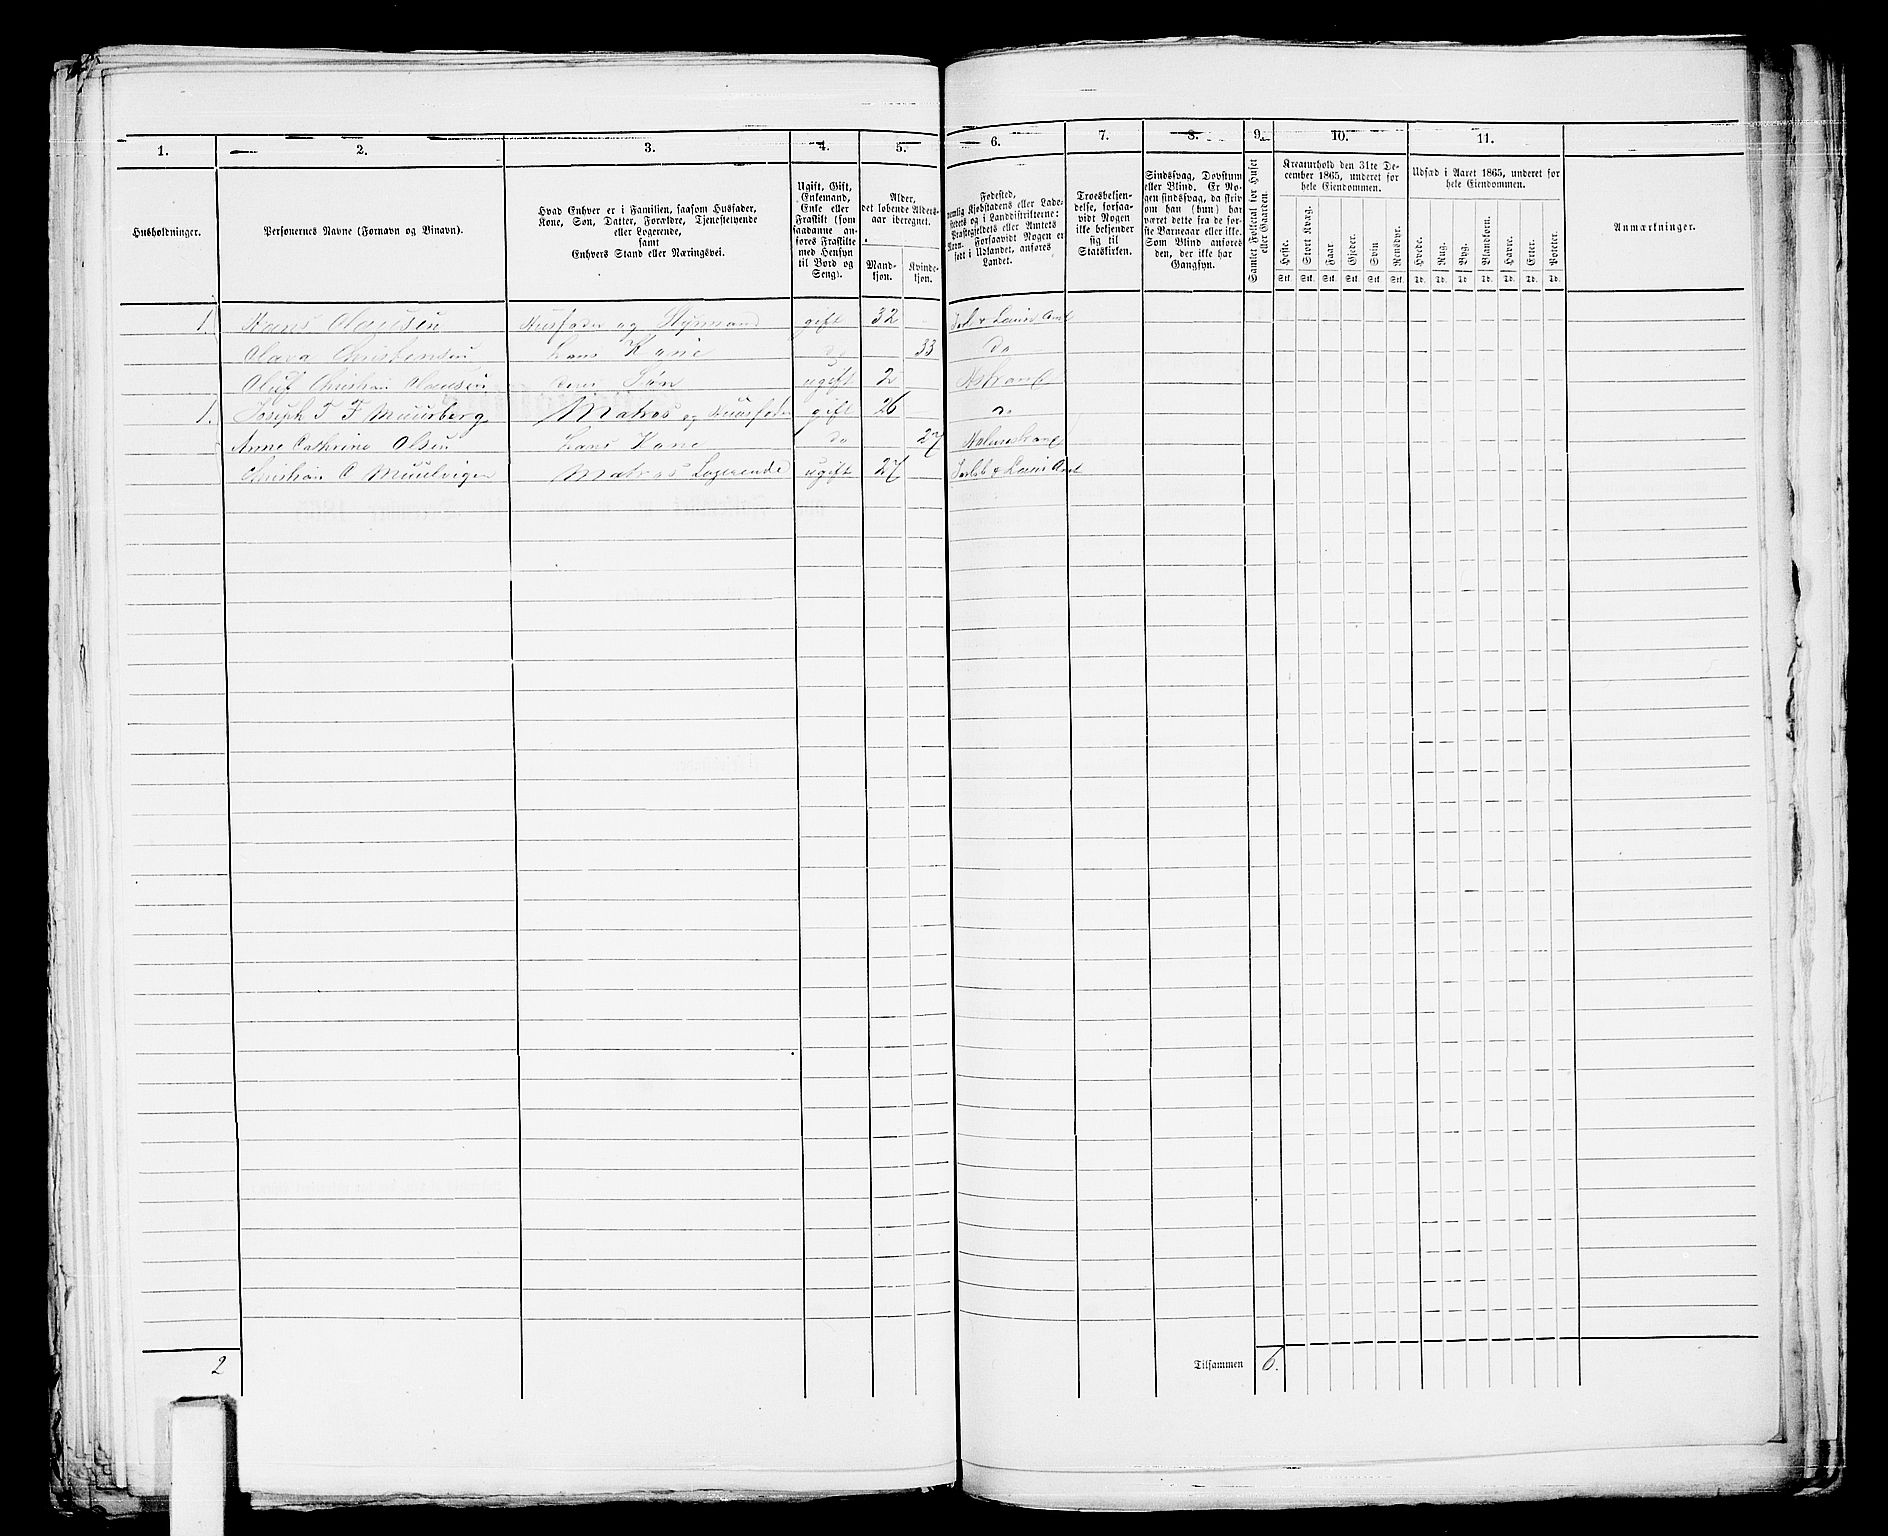 1. 2. 3. 4. 5. 6. 7. 8. 9. 10. 11.
Husholdninger.
Personernes Navne (Fornavn og Binavn).
Hvad Enhver er i Familien, saasom Husfader,
Kone, Søn, Datter, Forældre, Tjenestetyende
eller Logerende,
samt
Enhvers Stand eller Næringsvei.
Ugift, Gift,
Enkemand,
Enke eller
Fraskilt (som
saadanne an-
føres Fraskilte
med Hensyn
til Bord og
Seng).
Alder,
det løbende Alders-
aar iberegnet.
Mand-
kjøn.
Kvinde-
kjøn.
Fødested,
nemlig Kjøbstadens eller Lade-
stedets og i Landdistrikterne:
Præstegjeldets eller Amtets
Navn. Forsaavidt Nogen er
født i Udlandet, anføres
Landet.
Troesbekjen-
delse, forsaa-
vidt Nogen
ikke bekjender
sig til
Statskirken.
Sindssvag, Døvstum
eller Blind. Er No-
gen sindssvag, da skriv
om han (hun) har
været dette fra de før-
ste Barneaar eller ikke.
Som Blind anføres
den, der ikke har
Gangsyn.
Samlet Folketal for Huset
eller Gaarden.
Kreaturhold den 31te De-
cember 1865, underet for
hele Eiendommen.
Heste. Stort Kvæg. Faar Gjeder. Svin Rensdyr.
Stk. Stk. Stk. Stk. Stk. Stk.
Udsæd i Aaret 1865, underet for
hele Eiendommen.
Hvede. Rug. Byg. Blandkorn. Havre. Erter. Poteter.
Td. Td. Td. Td. Td. Td. Td.
Anmærkninger.
1. Hans Clausen Husfader og Styrmand gift 32 Jarl & Laur Amt
Olava Christensen Hans Kone do 33 do
Oluf Christian Clausen Søn ugift 2 
1. Joseph T F Muusberg Matros og Huusfader gift 26 do
Anne Cathrine Olsen Hans Kone do 27 Holmestrand
Christian O Muulvigen Matros Logerende ugift 27 Jarlsb & Laur Amt
2 Tilsammen 6.